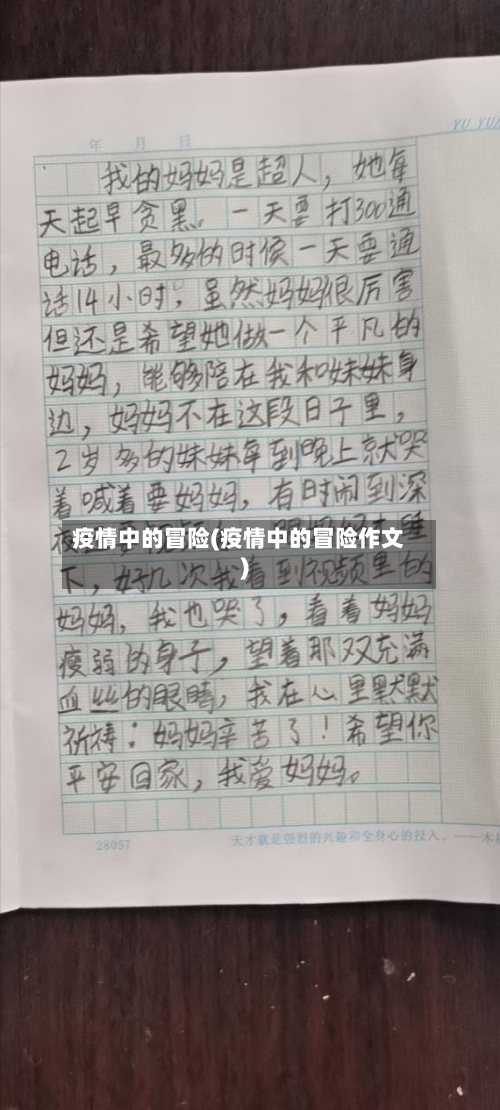 YU YU
年 月 日
我的妈妈是超人，她每
天起早贪黑。一天要打300通
电话，最多的时候一天要通
话14小时，虽然妈妈很厉害
但还是希望她做一个平凡的
妈妈，能够陪在我和妹妹身
边，妈妈不在这段日子里，
2岁多的妹妹每到晚上就哭
着喊着要妈妈，有时闹到深
夜
疫情中的冒险(疫情中的冒险作文
)
睡
下，好几次我看到视频里的
妈妈，我也哭了，看着妈妈
瘦弱的身子，望着那双充满
血丝的眼睛，我在心里默默
祈祷：妈妈辛苦了！希望你
平安回家，我爱妈妈。
28057 天才就是强烈的兴趣和全身心的投入。——木